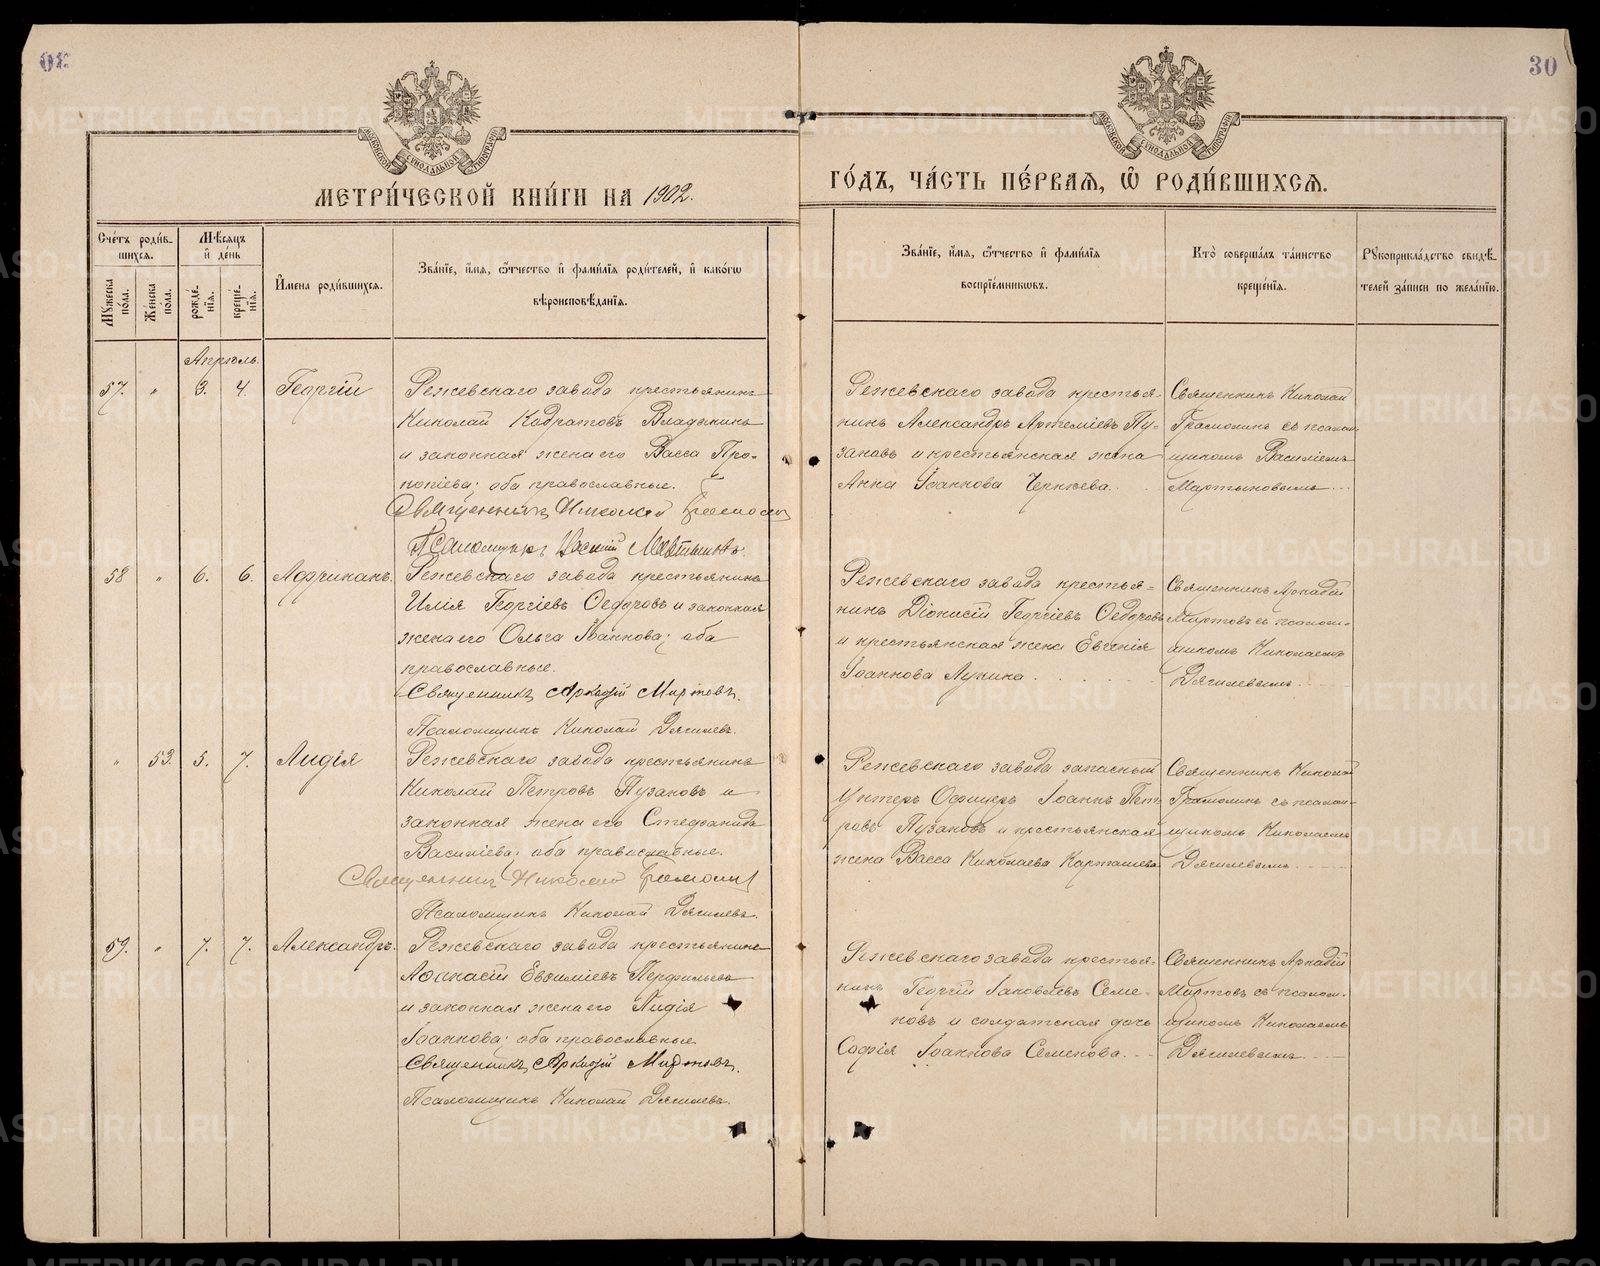 30
МЕТРИ́ЧЕСКОЙ КНИ́ГИ НА 1902.
ГО́ДЪ, ЧА́СТЬ ПЕ́РВАѦ, Ѡ҆ РОДИ́ВШИХСѦ.
Сче́тъ роди́в-
шихсѧ.
Мꙋжеска по́ла.
Же́нска по́ла.
Мѣ́сѧцъ и҆ де́нь
рожде́-нїѧ.
креще́-нїѧ.
И҆мена роди́вшихсѧ.
Зва́нїе, и҆́мѧ, ѻ҆́тчество и҆ фами́лїѧ роди́телей, и҆ како́гѡ
вѣроисповѣ́данїѧ.
Зва́нїе, и҆́мѧ, ѻ҆́тчество и҆ фами́лїѧ
воспрїе́мникѡвъ.
Кто̀ соверша́лъ та́инство
креще́нїѧ.
Рꙋкоприкла́дство свидѣ́-
телей за́писи по жела́нїю.
Апрѣль.
57. " 3. 4. Георгій
Режевскаго завода крестьянинъ
Николай Кодратовъ
и законная жена его Васса Про-
копіева; оба православные.
Священникъ Николай Грамолин
Псаломщикъ Василій Мартыновъ.
Режевскаго завода крестья-
нинъ Александръ Артеміевъ Пу-
зановъ и крестьянская жена
Анна Іоаннова
Священникъ Николай
Грамолинъ съ псалом-
щикомъ Василіемъ
Мартыновымъ
58 " 6. 6. Африканъ.
Режевскаго завода крестьянинъ
Илія Георгіевъ Ѳедоровъ и законная
жена его Ольга Іоаннова; оба
православные.
Священникъ Аркадій Мартовъ.
Псаломщикъ Николай Дягилевъ.
Режевскаго завода крестья-
нинъ Діонисій Георгіевъ Ѳедоровъ
и крестьянская жена Евгенія
Іоаннова Лукина
Священникъ Аркадій
Мартовъ съ псалом-
щикомъ Николаемъ
Дягилевымъ
" 53. 5. 7. Лидія
Режевскаго завода крестьянинъ
Николай Петровъ Пузановъ и
законная жена его Стефанида
Василіева; оба православные.
Священникъ Николай Грамолин
Псаломщикъ Николай Дягилевъ.
Режевскаго завода запасный
Унтеръ Офицеръ Іоаннъ Пет-
ровъ Пузановъ и крестьянская
жена Васса Николаева Карташева
Священникъ Николай
Грамолинъ съ псалом-
щикомъ Николаемъ
Дягилевымъ
59. " 7. 7. Александръ.
Режевскаго завода крестьянинъ
Аѳанасій Евѳиміевъ Перфильевъ
и законная жена его Лидія
Іоаннова; оба православные.
Священникъ Аркадій Мартовъ.
Псаломщикъ Николай Дягилевъ.
Режевскаго завода крестья-
нинъ Георгій Іаковлевъ Семе-
новъ и солдатская дочь
Софія Іоаннова Семенова.
Священникъ Аркадій
Мартовъ съ псалом-
щикомъ Николаемъ
Дягилевымъ
METRIKI.GASO-URAL.RU